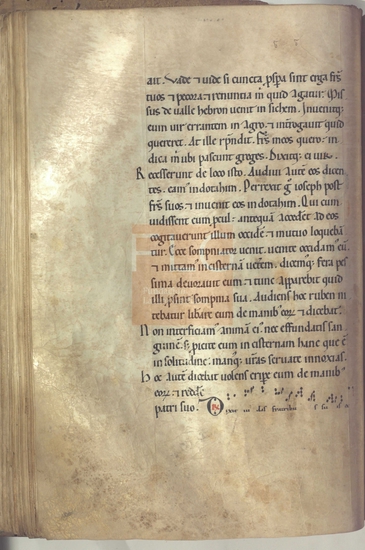 ait. Vade & uide si cuncta pspa sint erga frs
tuos & pecora. & renuntia m quid agatur. Mis
sus de ualle hebron uenit in sichem. Inuenitq;
eum uir errantem in Agro. & introgauit quid
quereret. At ille rpndit. frs meos quero. in
dica m ubi pascunt greges. Dixitq; ei uir.
Recesserunt de loco isto. Audiui Aute eos dicen
tes. eam in dotahim. Perrexit g ioseph post
frs suos. & inuenit eos in dotahim. Qui cum
uidissent eum pcul. antequa Accedet Ad eos
cogitauerunt illum occide. & mutuo loqueba
tur. Ecce sompniator uenit. uenite occidam eu
& mittam in cisterna uetem. dicemq; fera pes
sima deuorauit eum. & tunc Apparebit quid
illi psint sompnia sua. Audiens hoc ruben ni
tebatur libare eum de manib eor. & dicebat.
Non interficiam anima ei. nec effundatis san
guine. s; picite eum in cisternam hanc que e
in solitudine. manq; uras seruate innoxias.
Hoc Aute dicebat uolens eripe eum de manib
eor. & redde
patri suo. Dixit iu das fratribus s su is